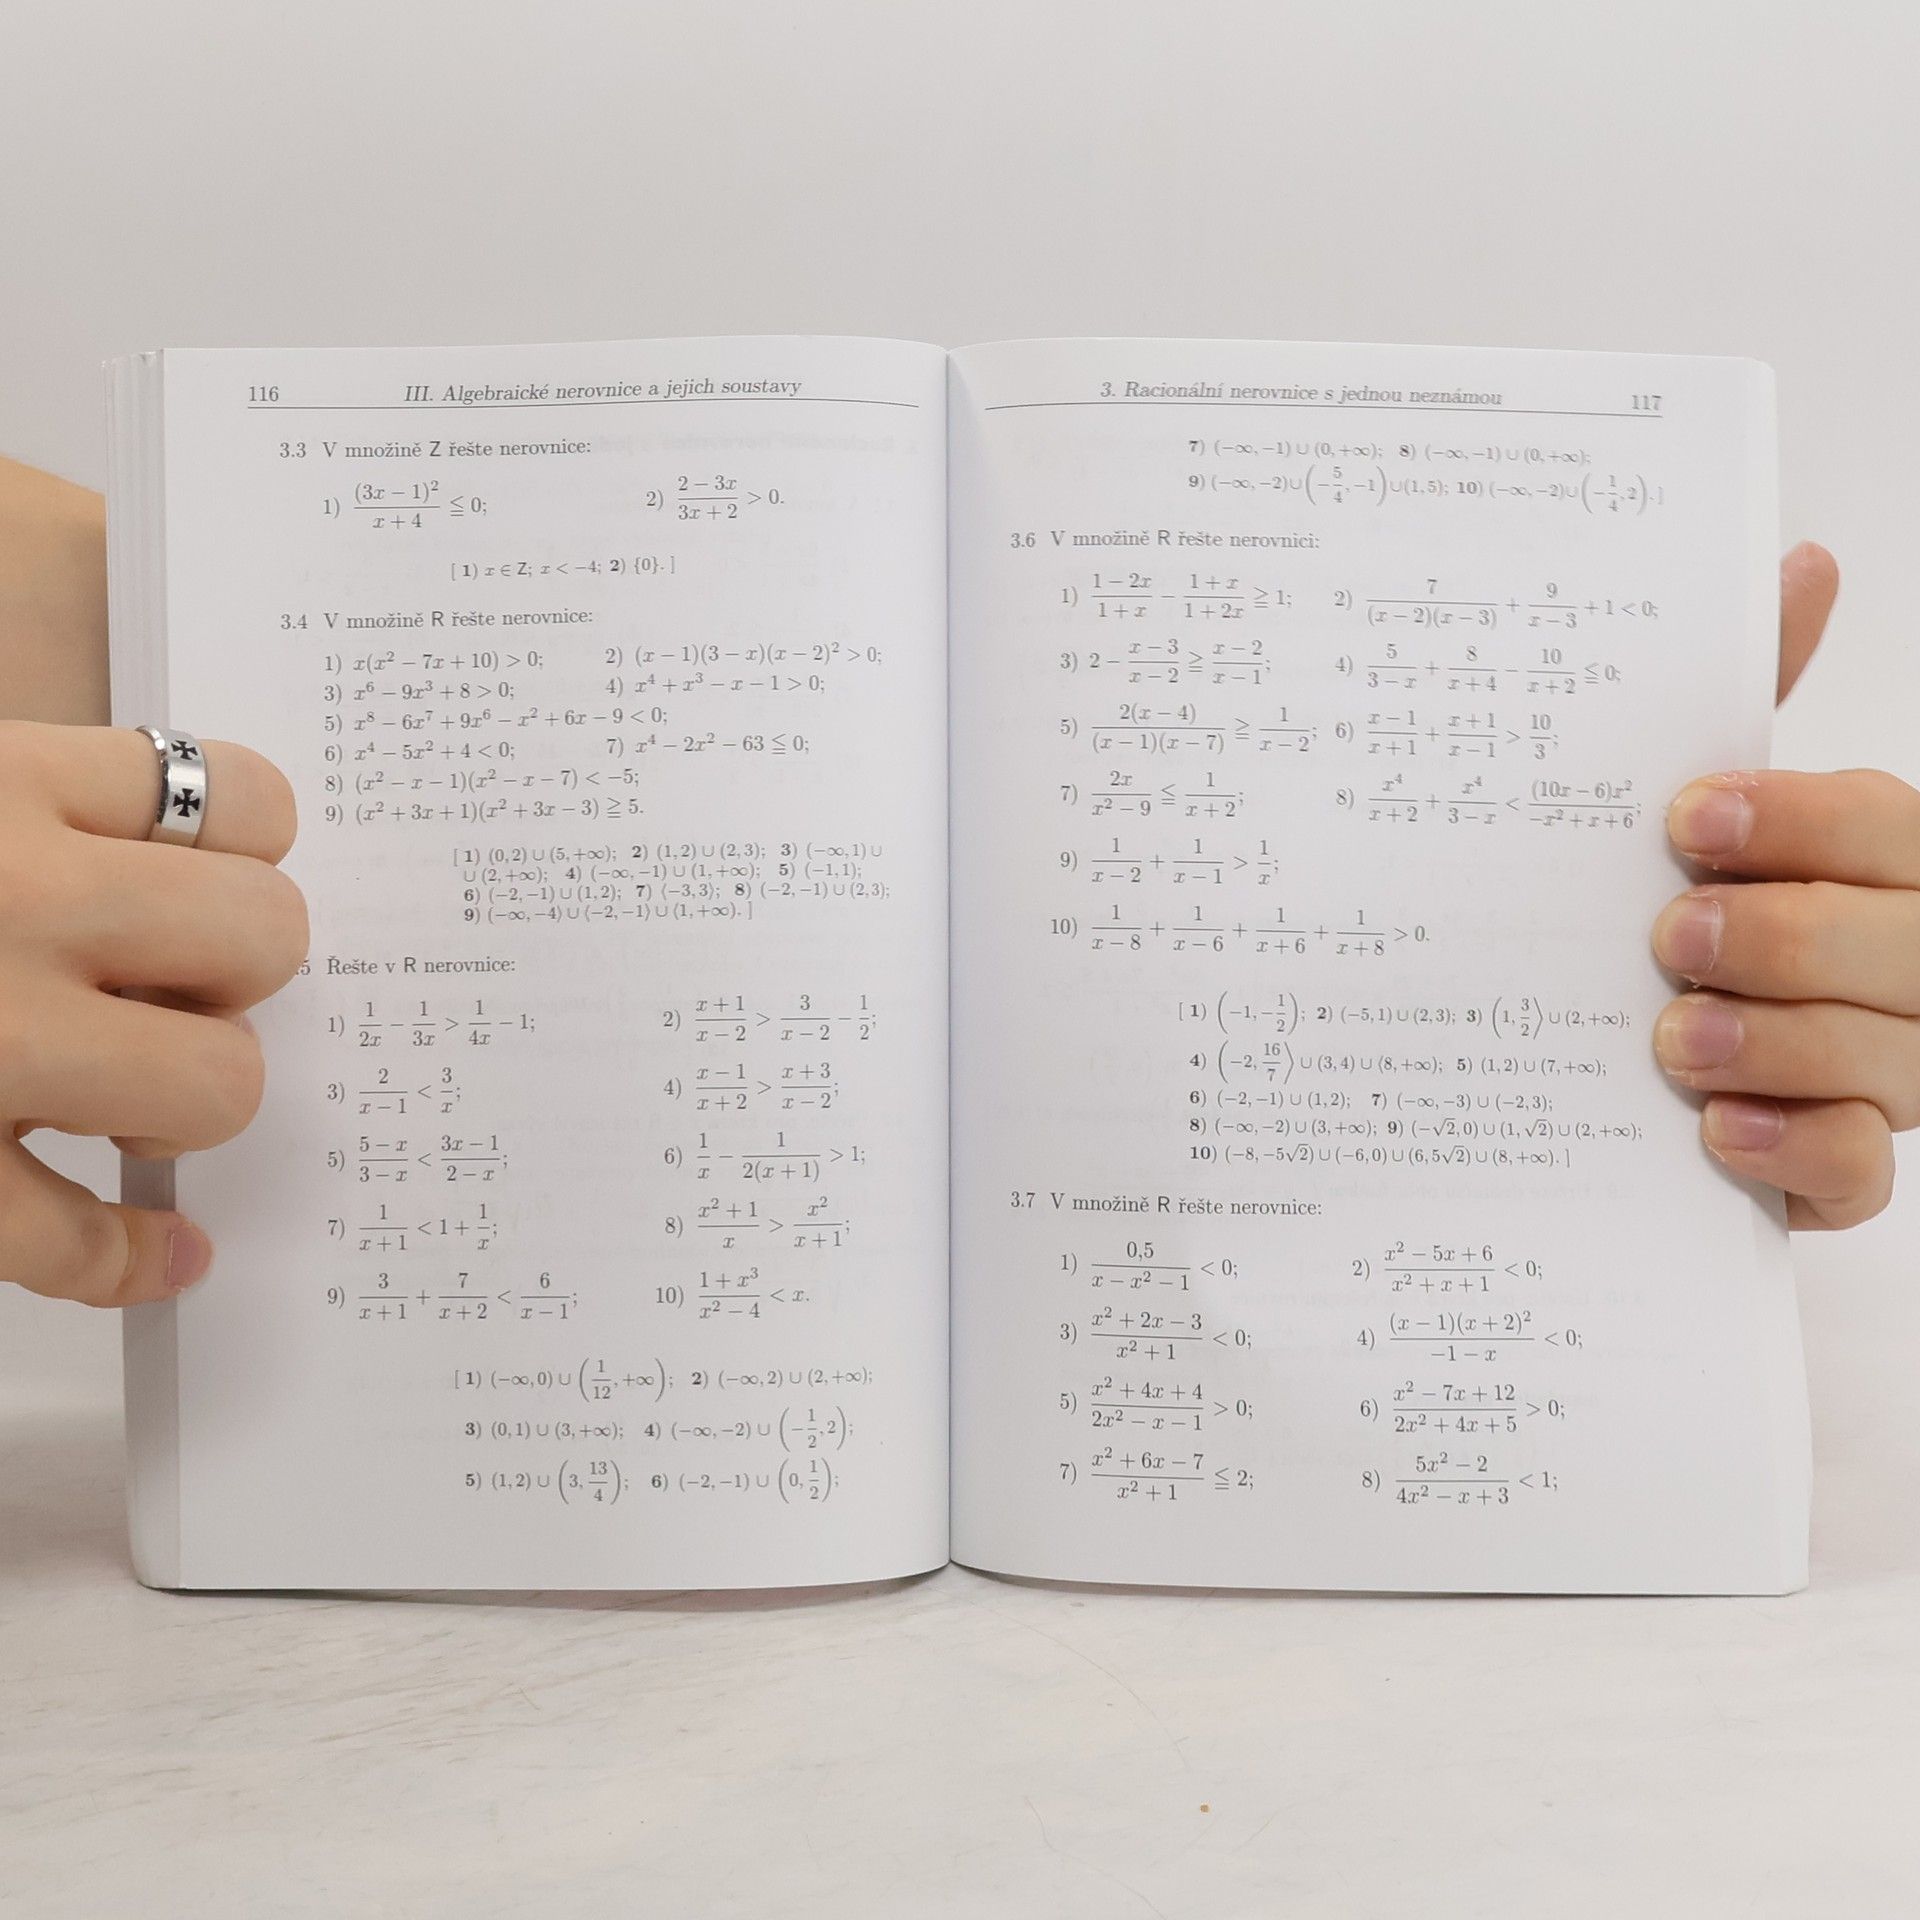 116 III. Algebraické nerovnice a jejich soustavy
3.3 V množině Z řešte nerovnice:
1) (3x − 1)²/(x + 4) ≦ 0; 2) (2 − 3x)/(3x + 2) > 0.
[ 1) x ∈ Z; x < −4; 2) {0}. ]
3.4 V množině R řešte nerovnice:
1) x(x² − 7x + 10) > 0; 2) (x − 1)(3 − x)(x − 2)² > 0;
3) x⁶ − 9x³ + 8 > 0; 4) x⁴ + x³ − x − 1 > 0;
5) x⁸ − 6x⁷ + 9x⁶ − x² + 6x − 9 < 0;
6) x⁴ − 5x² + 4 < 0; 7) x⁴ − 2x² − 63 ≦ 0;
8) (x² − x − 1)(x² − x − 7) < −5;
9) (x² + 3x + 1)(x² + 3x − 3) ≧ 5.
[ 1) (0, 2) ∪ (5, +∞); 2) (1, 2) ∪ (2, 3); 3) (−∞, 1) ∪
∪ (2, +∞); 4) (−∞, −1) ∪ (1, +∞); 5) (−1, 1);
6) (−2, −1) ∪ (1, 2); 7) ⟨−3, 3⟩; 8) (−2, −1) ∪ (2, 3);
9) (−∞, −4⟩ ∪ ⟨−2, −1⟩ ∪ ⟨1, +∞). ]
.5 Řešte v R nerovnice:
1) 1/(2x) − 1/(3x) > 1/(4x) − 1; 2) (x + 1)/(x − 2) > 3/(x − 2) − 1/2;
3) 2/(x − 1) < 3/x; 4) (x − 1)/(x + 2) > (x + 3)/(x − 2);
5) (5 − x)/(3 − x) < (3x − 1)/(2 − x); 6) 1/x − 1/(2(x + 1)) > 1;
7) 1/(x + 1) < 1 + 1/x; 8) (x² + 1)/x > x²/(x + 1);
9) 3/(x + 1) + 7/(x + 2) < 6/(x − 1); 10) (1 + x³)/(x² − 4) < x.
[ 1) (−∞, 0) ∪ (1/12, +∞); 2) (−∞, 2) ∪ (2, +∞);
3) (0, 1) ∪ (3, +∞); 4) (−∞, −2) ∪ (−1/2, 2);
5) (1, 2) ∪ (3, 13/4); 6) (−2, −1) ∪ (0, 1/2);
3. Racionální nerovnice s jednou neznámou 117
7) (−∞, −1) ∪ (0, +∞); 8) (−∞, −1) ∪ (0, +∞);
9) (−∞, −2) ∪ (−5/4, −1) ∪ (1, 5); 10) (−∞, −2) ∪ (−1/4, 2). ]
3.6 V množině R řešte nerovnici:
1) (1 − 2x)/(1 + x) − (1 + x)/(1 + 2x) ≧ 1; 2) 7/((x − 2)(x − 3)) + 9/(x − 3) + 1 < 0;
3) 2 − (x − 3)/(x − 2) ≧ (x − 2)/(x − 1); 4) 5/(3 − x) + 8/(x + 4) − 10/(x + 2) ≦ 0;
5) 2(x − 4)/((x − 1)(x − 7)) ≧ 1/(x − 2); 6) (x − 1)/(x + 1) + (x + 1)/(x − 1) > 10/3;
7) 2x/(x² − 9) ≦ 1/(x + 2); 8) x⁴/(x + 2) + x⁴/(3 − x) < (10x − 6)x²/(−x² + x + 6);
9) 1/(x − 2) + 1/(x − 1) > 1/x;
10) 1/(x − 8) + 1/(x − 6) + 1/(x + 6) + 1/(x + 8) > 0.
[ 1) (−1, −1/2); 2) (−5, 1) ∪ (2, 3); 3) (1, 3/2⟩ ∪ (2, +∞);
4) (−2, 16/7⟩ ∪ (3, 4) ∪ ⟨8, +∞); 5) (1, 2) ∪ (7, +∞);
6) (−2, −1) ∪ (1, 2); 7) (−∞, −3) ∪ (−2, 3);
8) (−∞, −2) ∪ (3, +∞); 9) (−√2, 0) ∪ (1, √2) ∪ (2, +∞);
10) (−8, −5√2) ∪ (−6, 0) ∪ (6, 5√2) ∪ (8, +∞). ]
3.7 V množině R řešte nerovnice:
1) 0,5/(x − x² − 1) < 0; 2) (x² − 5x + 6)/(x² + x + 1) < 0;
3) (x² + 2x − 3)/(x² + 1) < 0; 4) (x − 1)(x + 2)²/(−1 − x) < 0;
5) (x² + 4x + 4)/(2x² − x − 1) > 0; 6) (x² − 7x + 12)/(2x² + 4x + 5) > 0;
7) (x² + 6x − 7)/(x² + 1) ≦ 2; 8) (5x² − 2)/(4x² − x + 3) < 1;